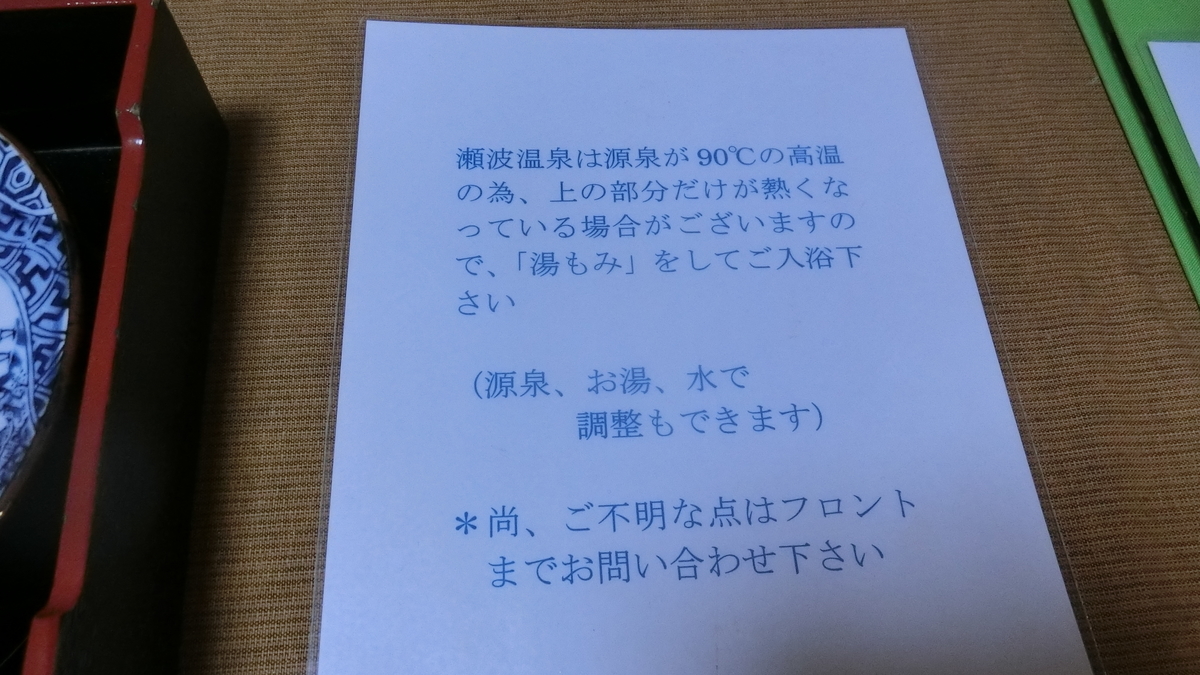 瀬波温泉は源泉が90℃の高温
の為、上の部分だけが熱くな
っている場合がございますの
で、「湯もみ」をしてご入浴下
さい
（源泉、お湯、水で
調整もできます）
＊尚、ご不明な点はフロント
までお問い合わせ下さい